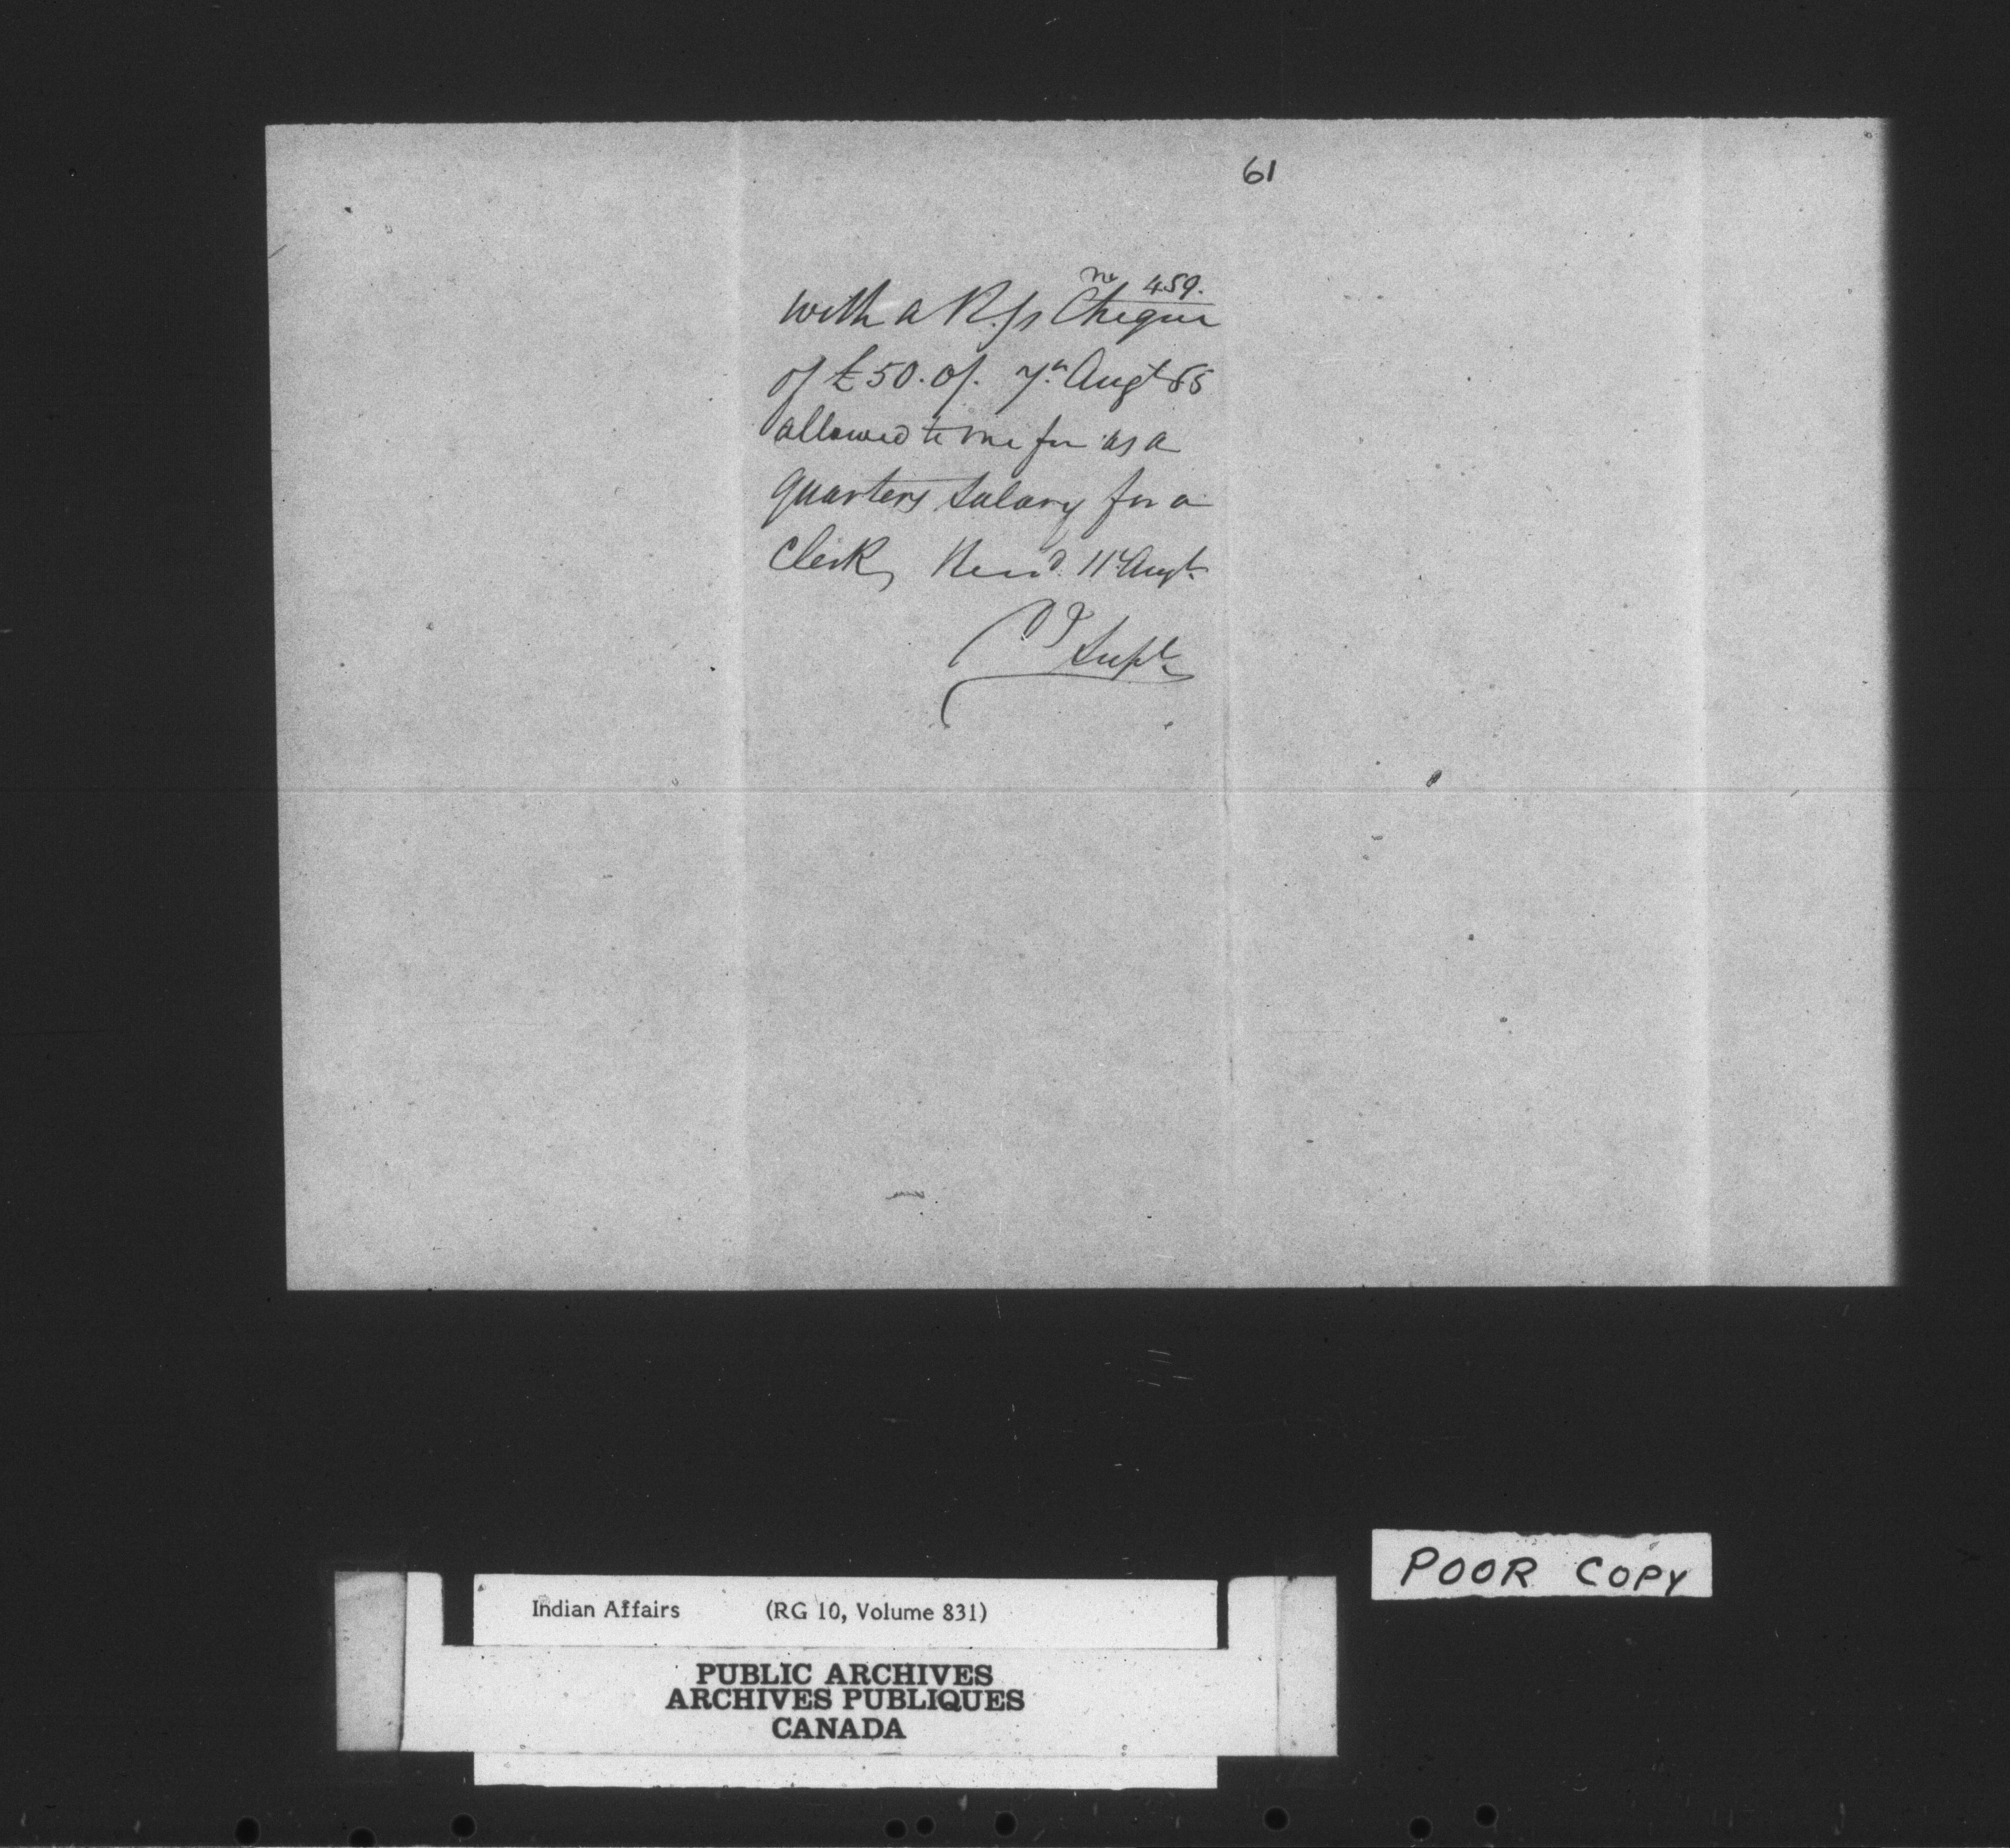 61
No 459.
with a R. Gs Cheque
of £50. of. 7th Augt 55
allowed to me for as a
quarters salary for a
Clerk, Recd. 11th Augt.
Supt
POOR COPY
Indian Affairs (RG 10, Volume 831)
PUBLIC ARCHIVES
ARCHIVES PUBLIQUES
CANADA